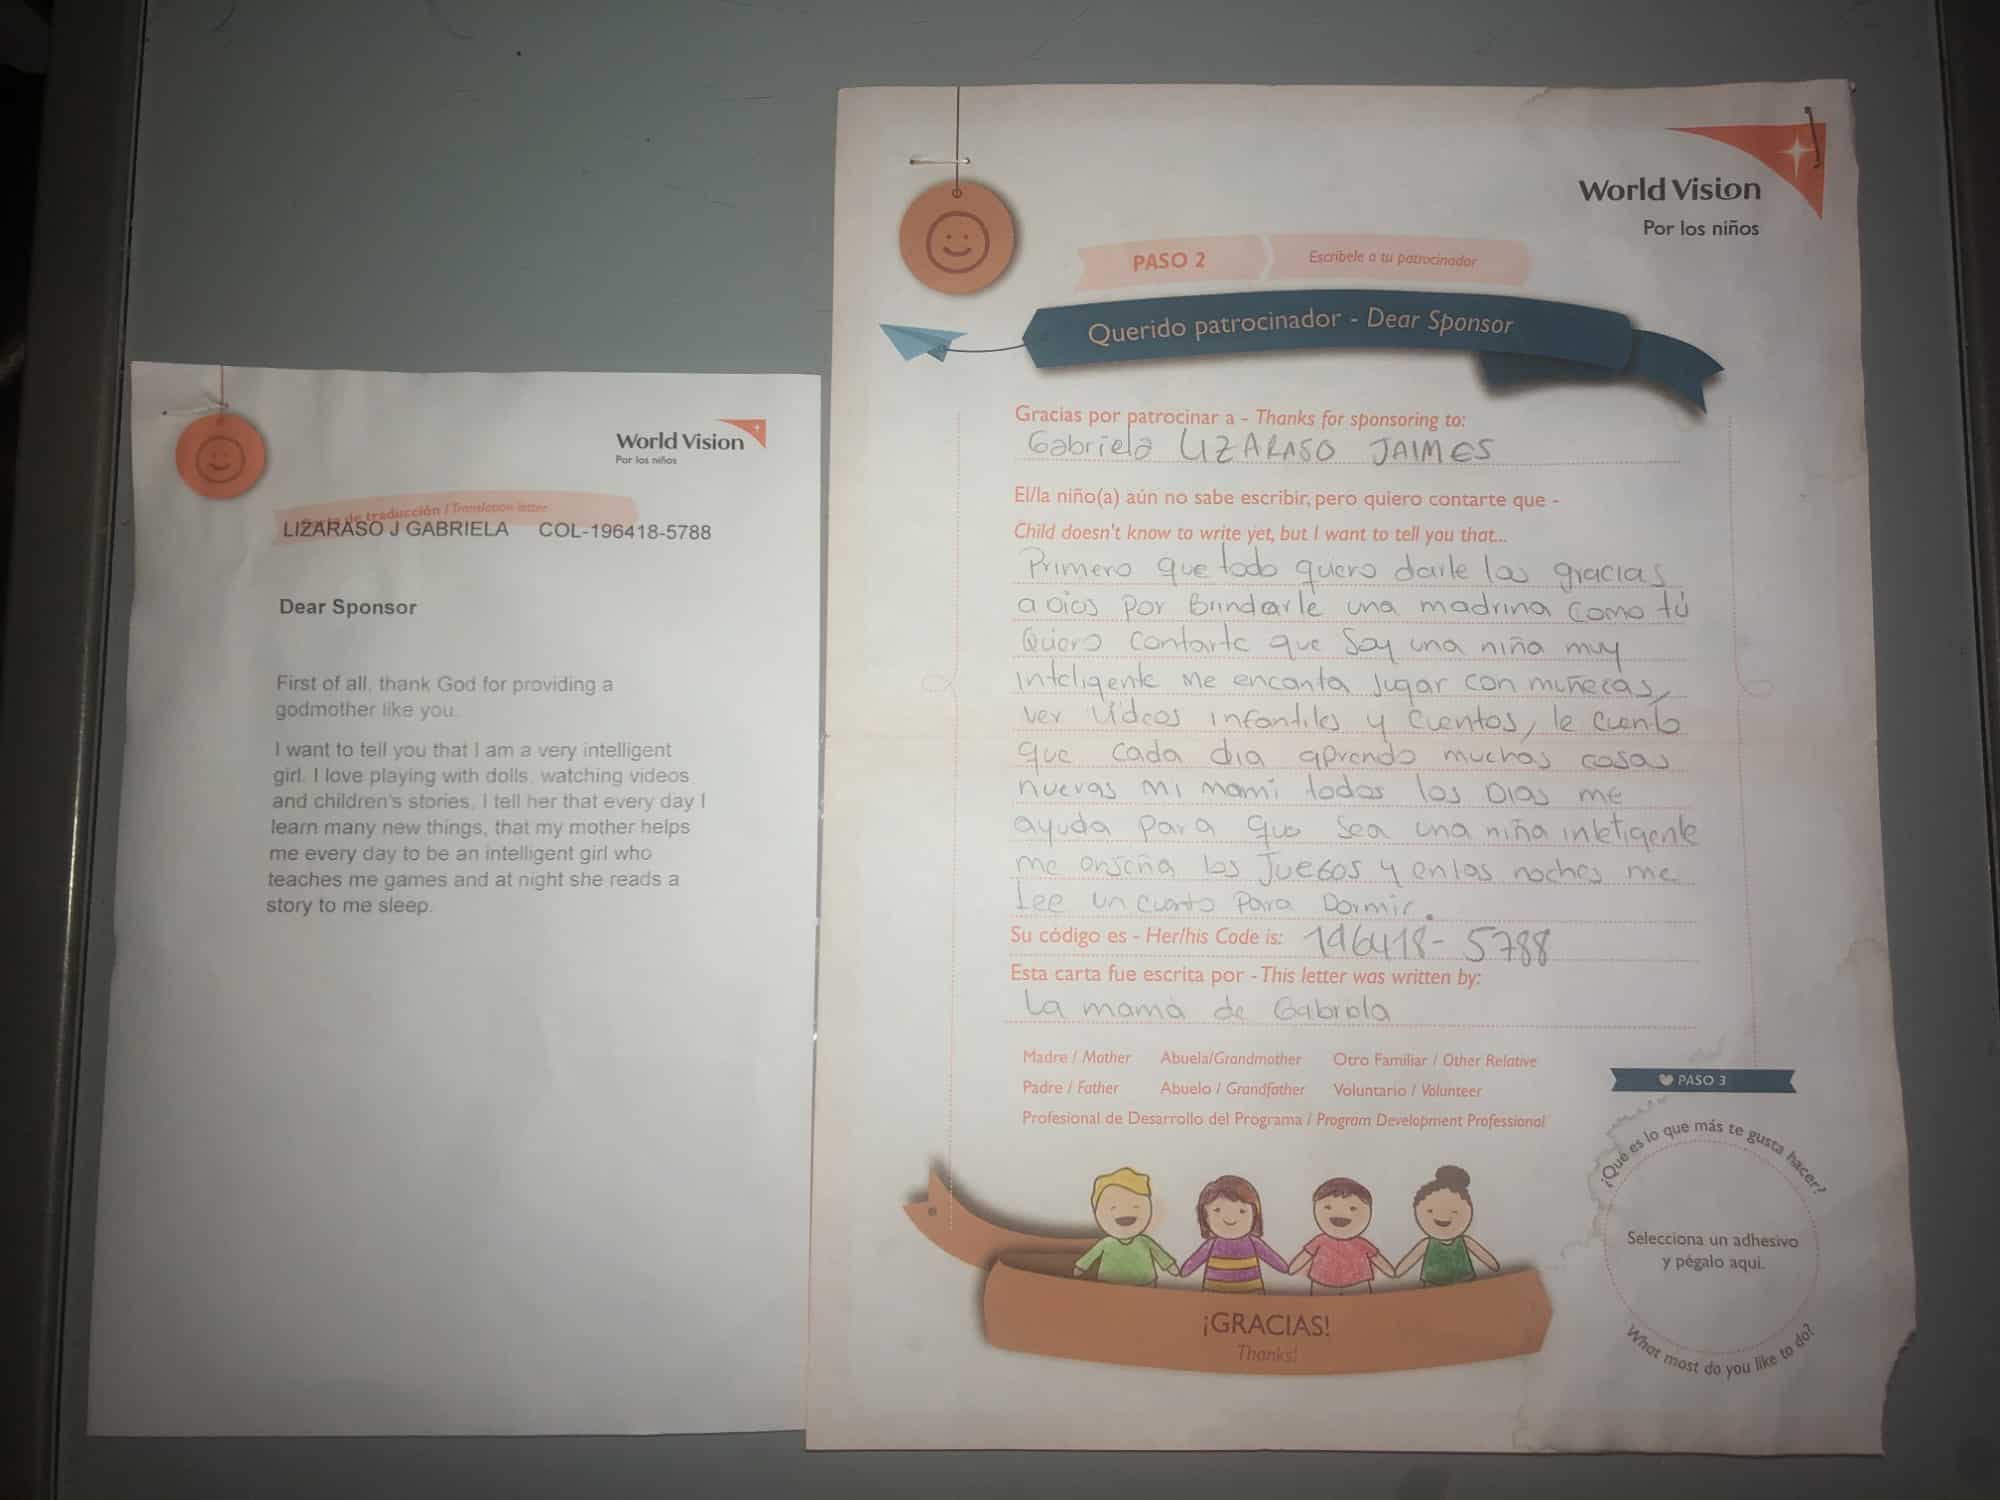 World Vision
Por los niños
Carta de traducción / Translation letter
LIZARASO J GABRIELA COL-196418-5788
Dear Sponsor
First of all, thank God for providing a
godmother like you.
I want to tell you that I am a very intelligent
girl. I love playing with dolls, watching videos
and children's stories, I tell her that every day I
learn many new things, that my mother helps
me every day to be an intelligent girl who
teaches me games and at night she reads a
story to me sleep.
World Vision
Por los niños
PASO 2
Escríbele a tu patrocinador
Querido patrocinador - Dear Sponsor
Gracias por patrocinar a - Thanks for sponsoring to:
Gabriela LIZARASO JAIMES
El/la niño(a) aún no sabe escribir, pero quiero contarte que -
Child doesn't know to write yet, but I want to tell you that...
Primero que todo quero darle las gracias
a Dios por Brindarle una madrina como tú
Quiero contarte que Soy una niña muy
inteligente me encanta Jugar con muñecas,
ver Videos infantiles y Cuentos, le cuento
que cada dia aprendo muchas cosas
nuevas mi mami todos los Dias me
ayuda para que sea una niña inteligente
me enseña los Juegos y en las noches me
Lee un cuento para Dormir.
Su código es - Her/his Code is: 196418-5788
Esta carta fue escrita por - This letter was written by:
La mamá de Gabriela
Madre / Mother Abuela/Grandmother Otro Familiar / Other Relative
Padre / Father Abuelo / Grandfather Voluntario / Volunteer
Profesional de Desarrollo del Programa / Program Development Professional
PASO 3
¿Qué es lo que más te gusta hacer?
Selecciona un adhesivo
y pégalo aqui.
What most do you like to do?
¡GRACIAS!
Thanks!